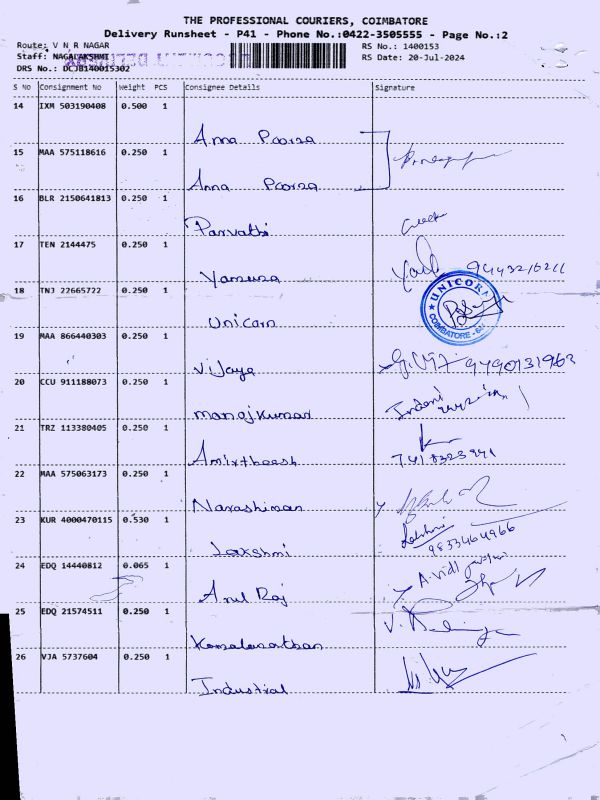 THE PROFESSIONAL COURIERS, COIMBATORE
Delivery Runsheet - P41 - Phone No.:0422-3505555 - Page No.:2
Route: V N R NAGAR
RS No.: 1400153
Staff: NAGALAKSHMI
RS Date: 20-Jul-2024
DRS No.: DCJB140015302
S No Consignment No Weight PCS Consignee Details Signature
14 IXM 503190408 0.500 1
Anna Poorna
15 MAA 575118616 0.250 1
Anna Poorna
16 BLR 2150641813 0.250 1
Parvathi
17 TEN 2144475 0.250 1
Yamuna
18 TNJ 22665722 0.250 1
UNICORN
COIMBATORE
Unicorn
19 MAA 866440303 0.250 1
Vijaya
20 CCU 911188073 0.250 1
manojkumar
21 TRZ 113380405 0.250 1
Amirtheesh
22 MAA 575063173 0.250 1
Narashiman
23 KUR 4000470115 0.530 1
Lakshmi
Lakshmi
9833464966
24 EDQ 14440812 0.065 1
Arul Raj
25 EDQ 21574511 0.250 1
Kamalanathan
26 VJA 5737604 0.250 1
Industrial